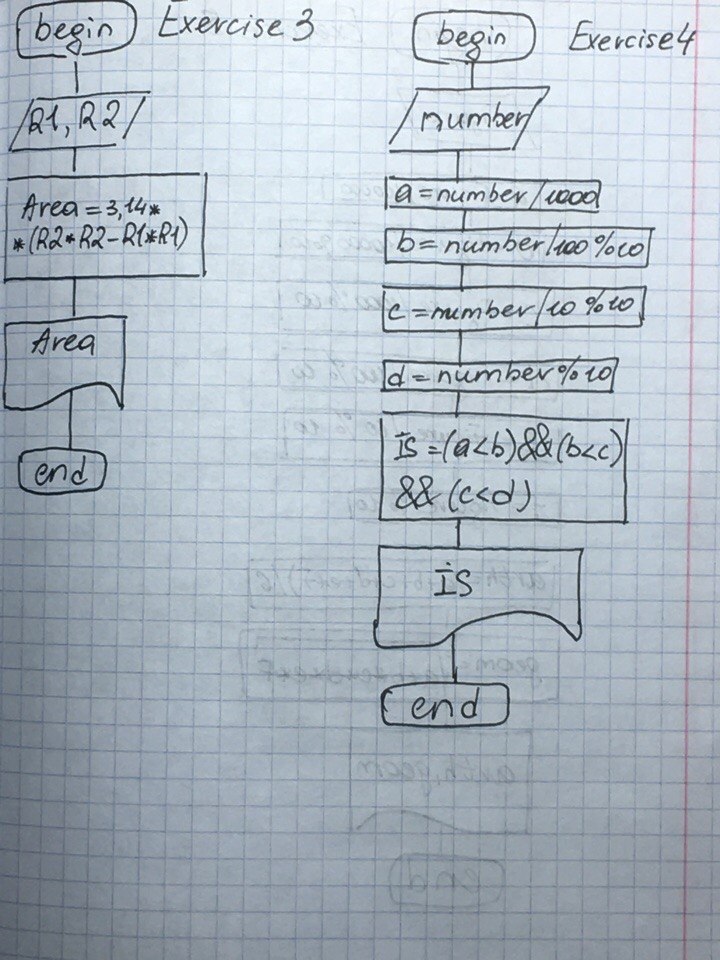 Exercise 3
begin
R1, R2
Area = 3,14*
*(R2*R2-R1*R1)
Area
end
Exercise 4
begin
number
a = number/1000
b = number/100%10
c = number/10%10
d = number%10
is = (a<b)&&(b<c)
&& (c<d)
is
end